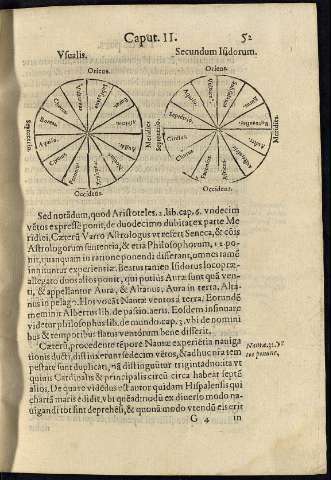 Caput. II. 52
Vsualis. Secundum Isidorum.
Oriens. Oriens.
Septentrio. Meridies. Septentrio. Meridies.
Occidens. Occidens.
Sed notādum, quod Aristoteles. 2. lib. cap. 6. vndecim
vētos expressè ponit, de duodecimo dubitat ex parte Me
ridiei. Cæterū Varro Astrologus vt refert Seneca, & cōis
Astrologorum sententia, & etiā Philosophorum, 12 po-
nit, quanquam in ratione ponendi differant, omnes tamē
inniuntur experientiæ. Beatus tamen Isidorus loco præ-
allegato duos alios ponit, qui potius Auræ sunt quā ven-
ti, & appellantur Aura, & Altanus, Aura in terra. Alta-
nus in pelago. Hos vocāt Nautæ ventos à terra. Eorundē
meminit Albertus lib. de passio. aeris. Eosdem insinuare
videtur philosophus lib. de mundo. cap. 3. vbi de nomini
bus & temporibus flatus ventorum bene disserit.
Cæterū, procedente tēpore Nautæ experiētia nauiga
tionis ducti, distinxerunt sedecim vētos, & adhuc nia tem
pestate sunt duplicati, nā distinguūtur triginta duo ita vt
quiuis Cardinalis & principalis circū circa habeat septē
alios. De quare vidēdus est autor quidam Hispalensis qui
chartā maris edidit, vbi quēadmodū ex diuerso modo na
uigandi tot sint deprehēsi, & quonā modo vtendū eis erit
Nautæ. 32. vē
tos ponunt.
G 4 in